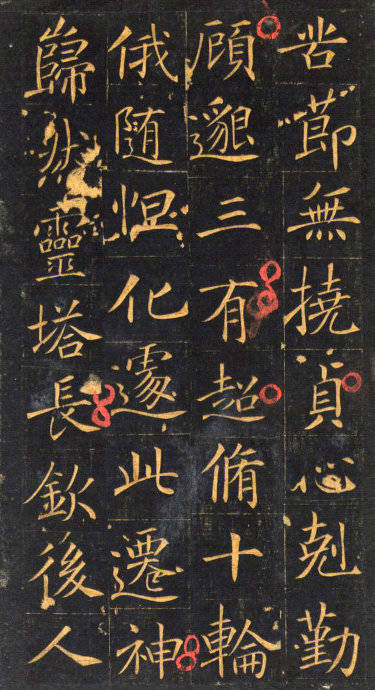 苦莭無撓貞心剋勤
頋邈三有超脩十輪
俄随怛化遽此遷神
巋然靈塔長欽後人